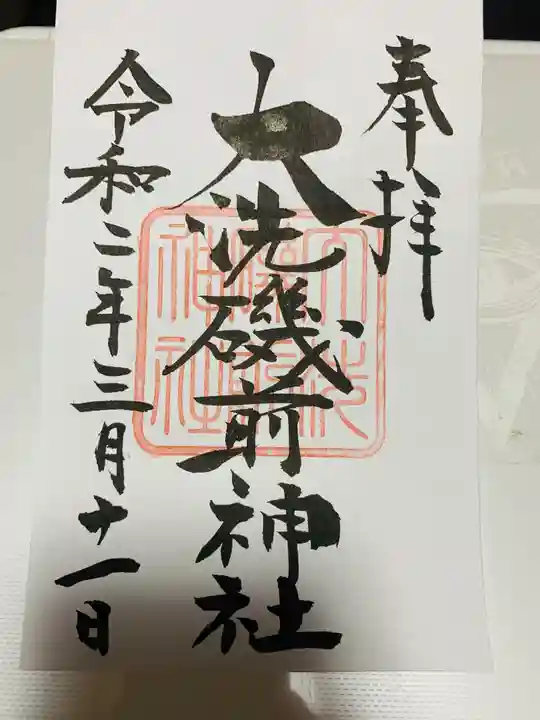 奉拝
大洗磯前神社
令和二年三月十一日
大洗
磯前
神社